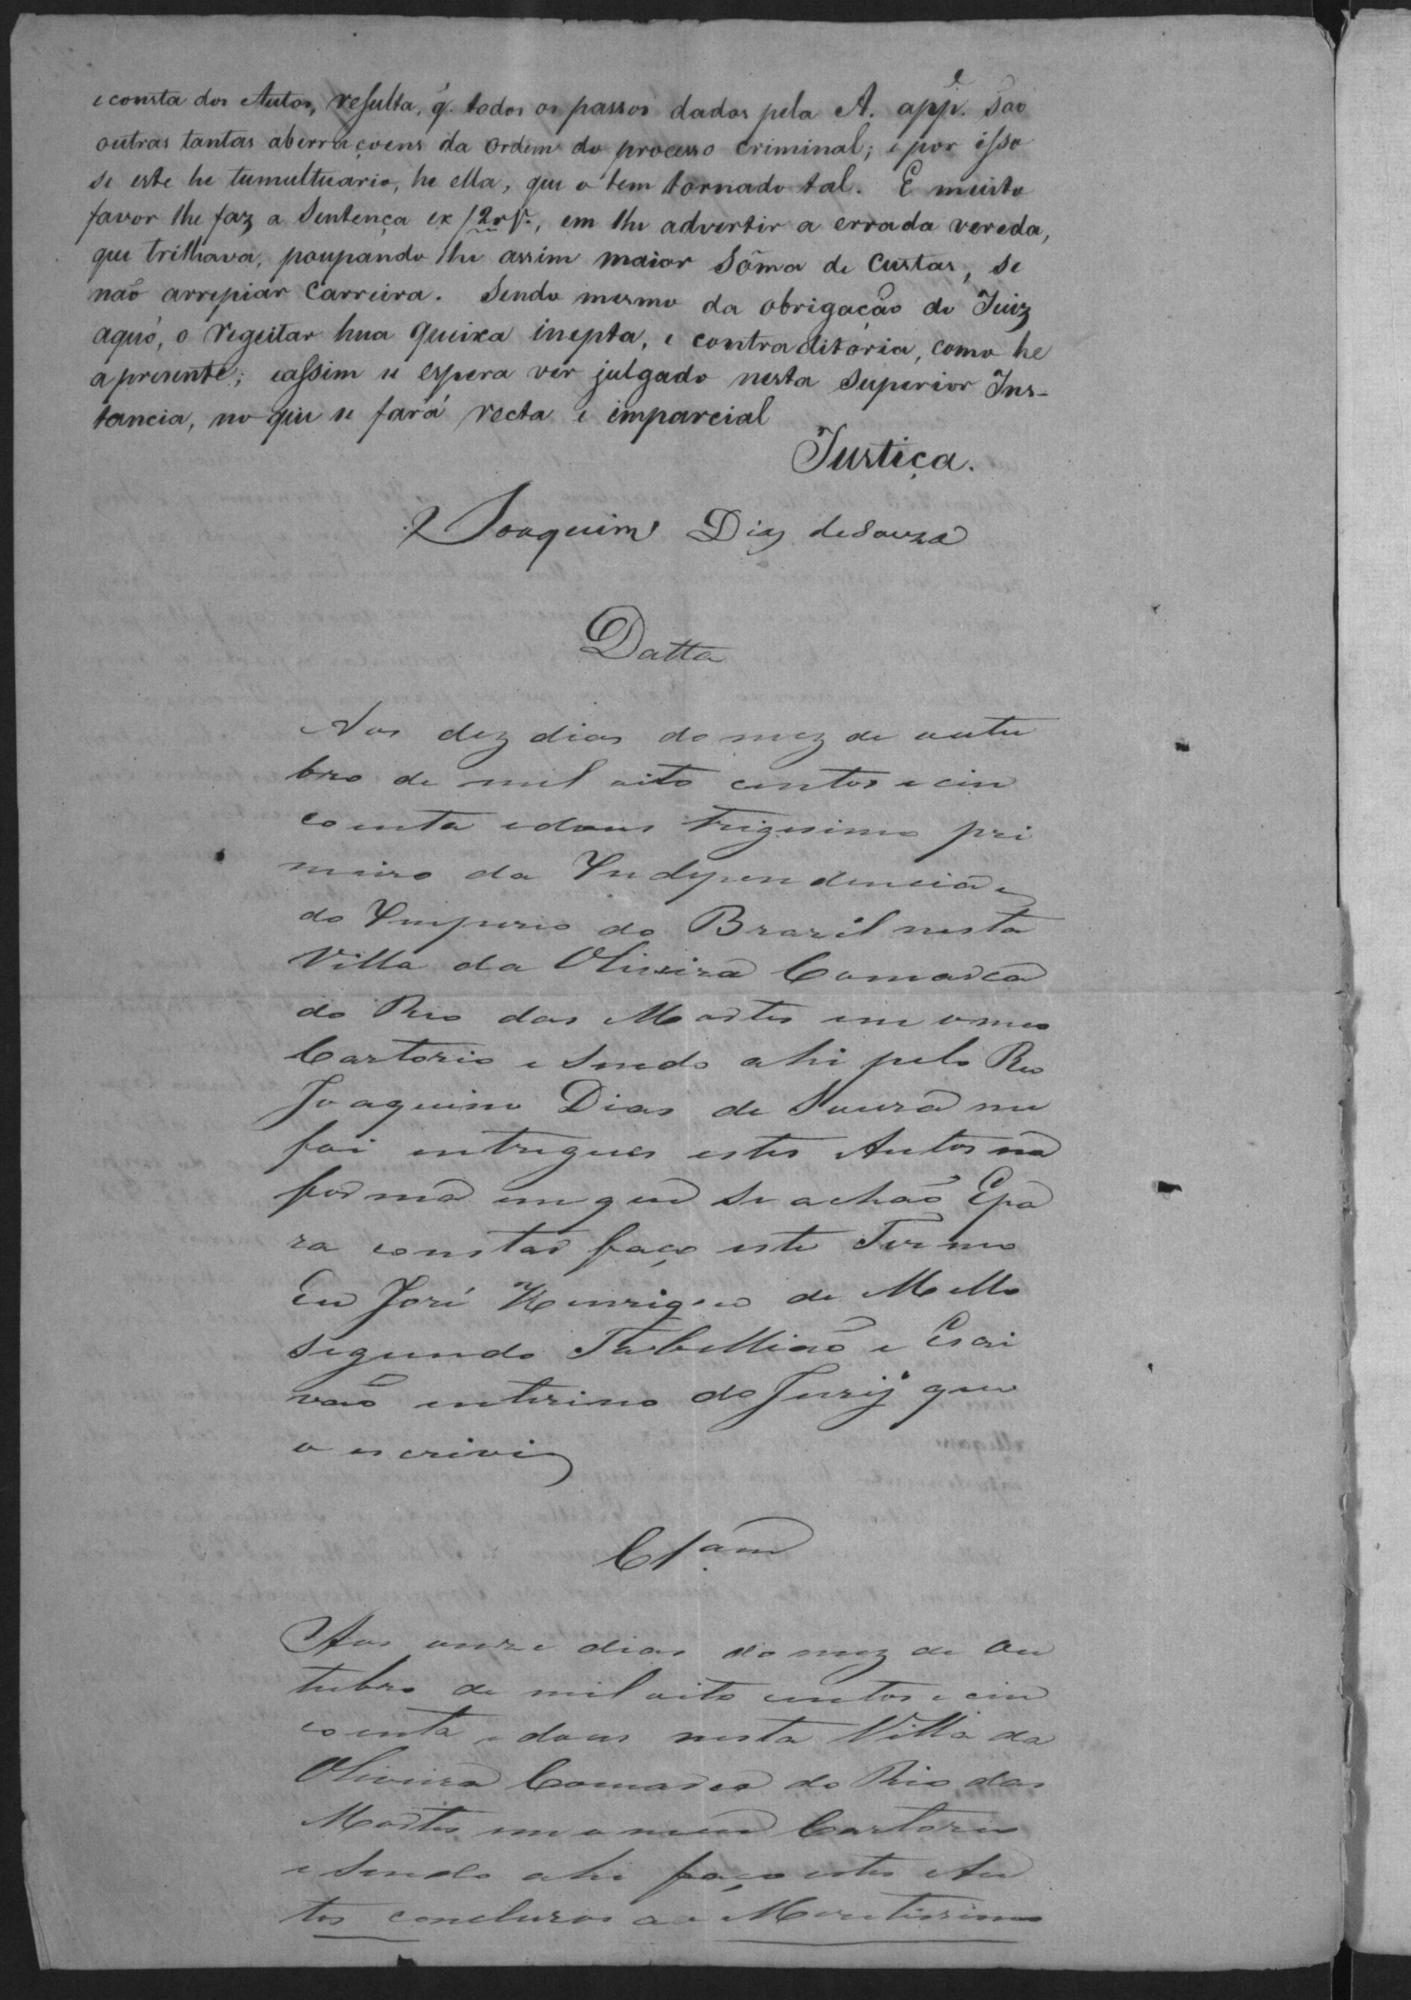 e consta dos Autos, resulta, q. todos os passos dados pela A. app.e são
outras tantas aberraçoens da ordem do processo criminal; e por isso
se este he tumultuario, he ella, que o tem tornado tal. E muito
favor lhe faz a Sentença ex f 2 v., em lhe advertir a errada vereda,
que trilhava, poupando lhe assim maior sôma de custas, se
não arrepiar carreira. Sendo mesmo da obrigação do Juiz
aquó, o regeitar hua queixa inepta, e contraditória, como he
a presente; eassim se espera ver julgado nesta Superior Ins-
tancia, no que se fará recta e imparcial
Justiça.
Joaquim Dias deSouza
Datta
Aos dez dias do mez de outu
bro de mil oito centos e cin
coenta edous Trigesimo pri
meiro da Independencia e
do Imperio do Brazil nesta
Villa da Oliveira Comarca
do Rio das Mortes em omeu
Cartorio e sendo ahi pelo Reo
Joaquim Dias de Souza me
foi entregues estes Autos na
forma emque se achão Epa
ra constar faço este Termo
Eu José Henriques de Mello
segundo Tabellião e Escri
vão interino do Jurÿ que
o escrivi
Clsam
Aos onze dias do mez de Ou
tubro de mil oito centos e cin
coenta edous nesta Villa da
Oliveira Comarca do Rio das
Mortes em o meu Cartorio
e sendo ahi faço estes Au
tos concluzos ao Meretissimo